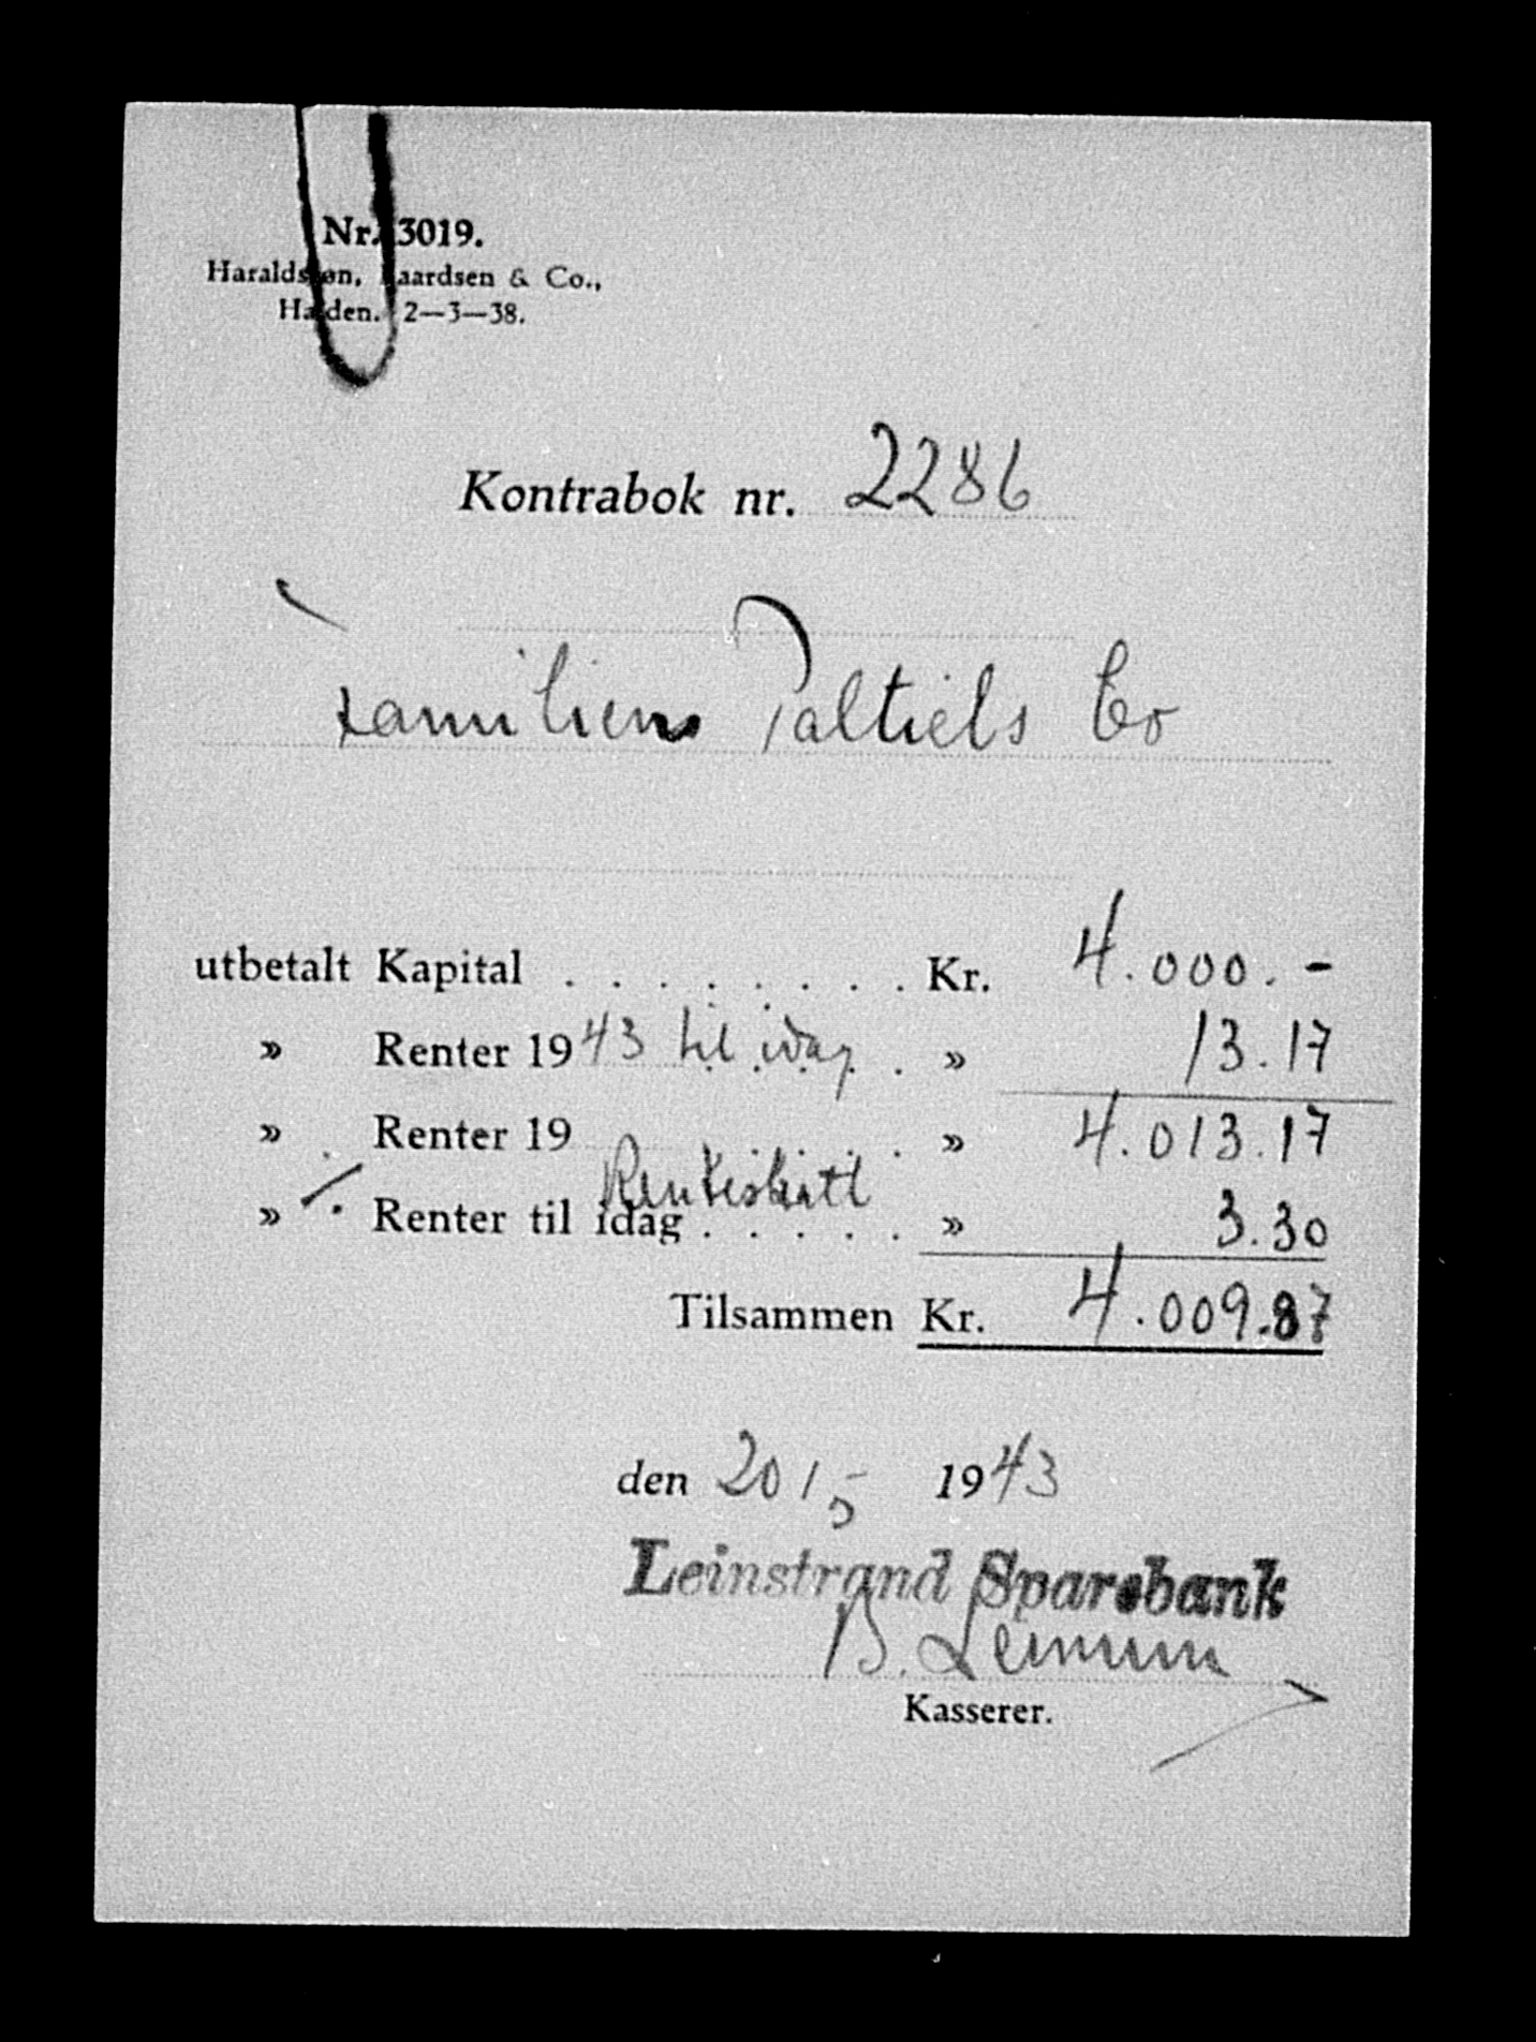 Nr. 3019.
& Co.,
2—3—38.
Kontrabok nr. 2286
Familiens Paltiels Co
utbetalt Kapital . . . . . . . . Kr. 4.000.-
» Renter 1943 til idag . » 13.17
» Renter 19 . . . . » 4.013.17
Renteskatt
» ./. Renter til idag . . . . . » 3.30
Tilsammen Kr. 4.009.87
den 20/5 1943
Leinstrand Sparebank
B.
Kasserer.